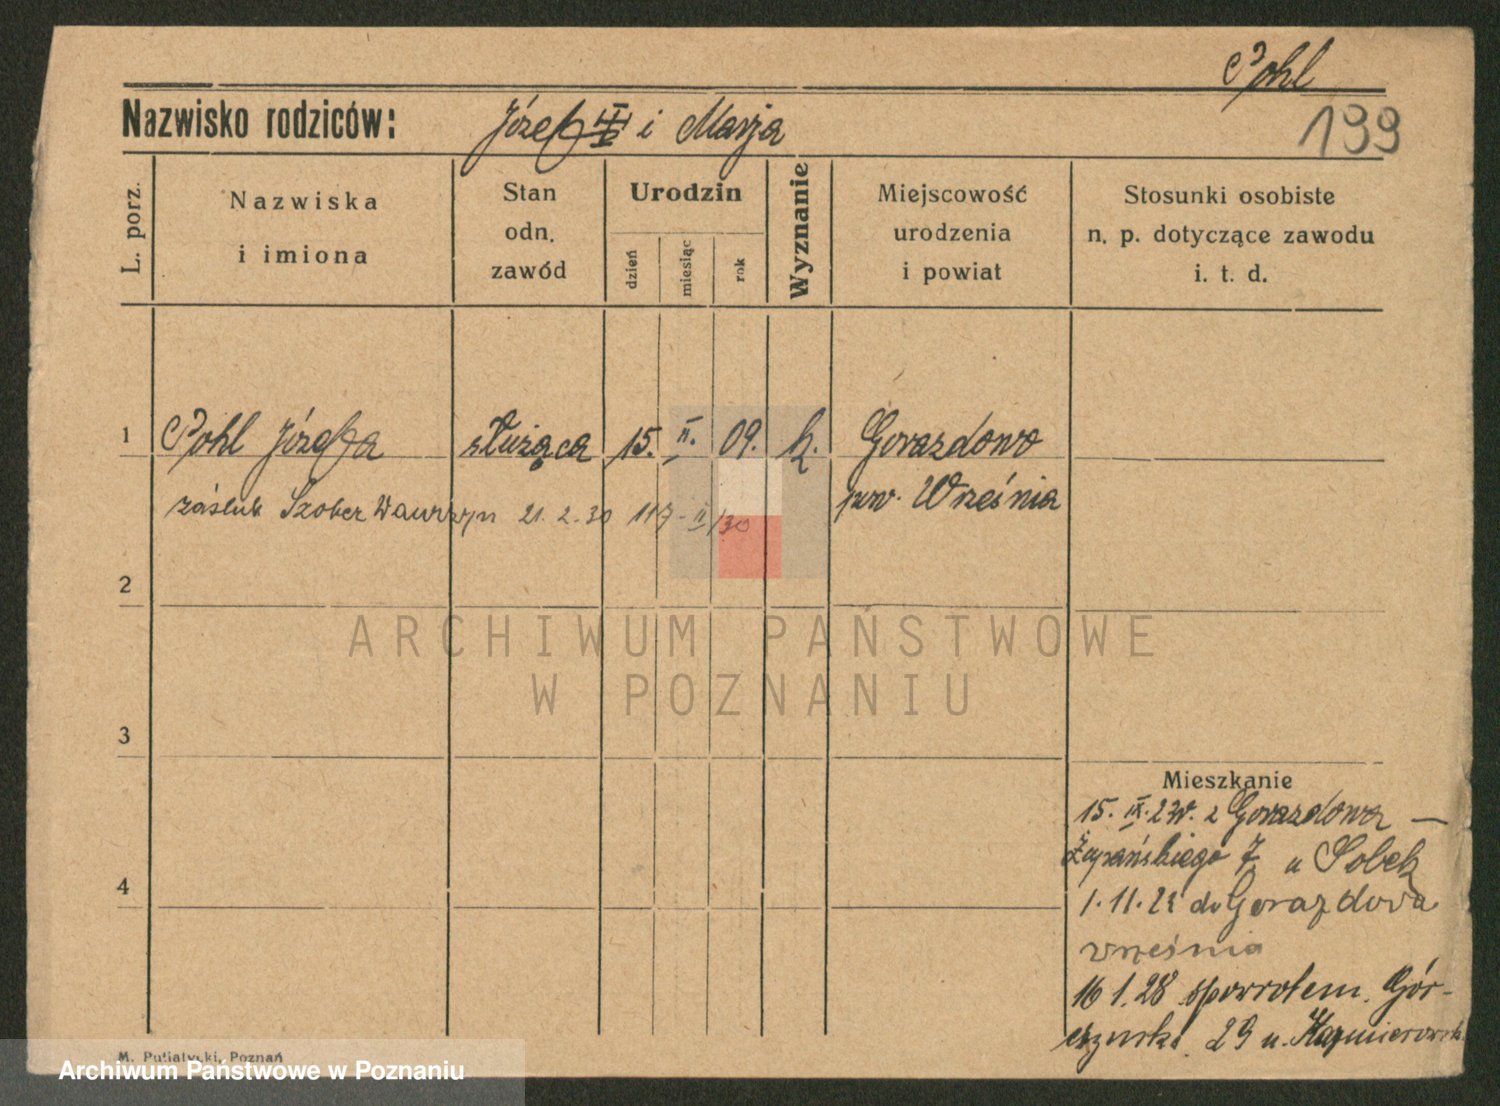 Pohl
199
Nazwisko rodziców: Józef i Marja
L. porz.
Nazwiska
i imiona
Stan
odn.
zawód
Urodzin
dzień
miesiąc
rok
Wyznanie
Miejscowość
urodzenia
i powiat
Stosunki osobiste
n. p. dotyczące zawodu
i. t. d.
1 Pohl Józefa służąca 15. II. 09. k. Gorazdowo
zaślub Szober Wawrzyn 21. 2. 30 117 - II/30
pow. Września
2
ARCHIWUM PAŃSTWOWE
W POZNANIU
3
Mieszkanie
15. IX. z Gorazdowa —
Żupańskiego 7 u Sobek
4
1. 11. do Gorazdova
Września
16 1. 28 spowrotem. Gór-
29 u. Kazmierowsk
M. Putiatycki, Poznań
Archiwum Państwowe w Poznaniu